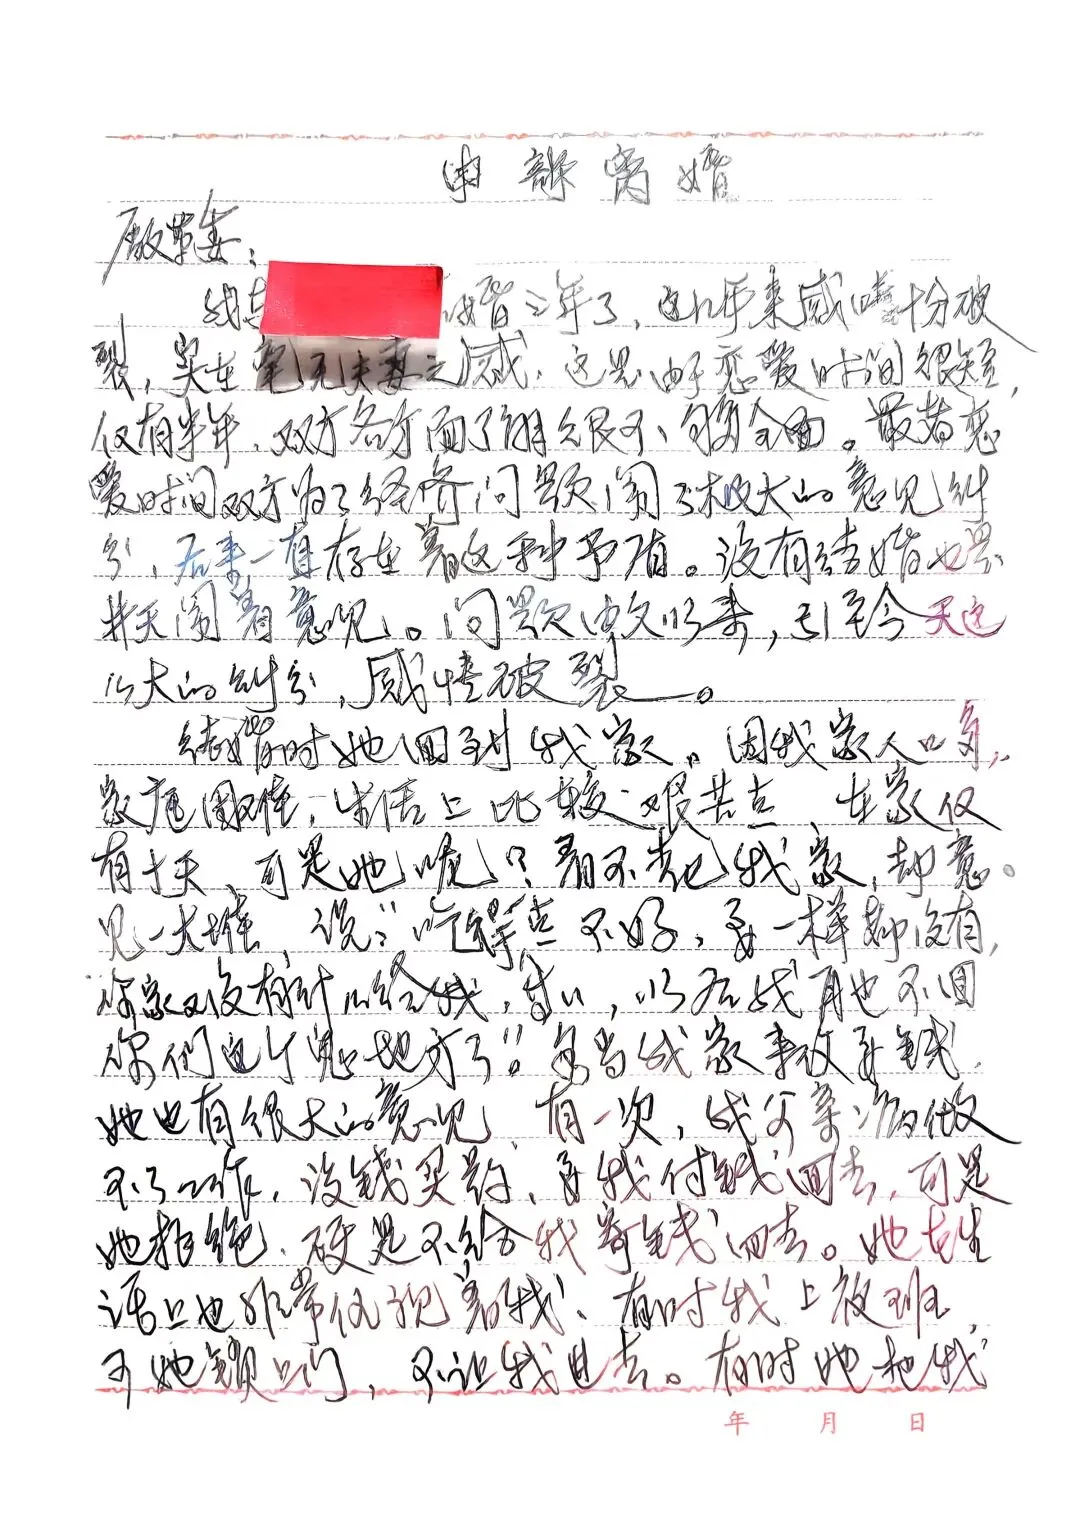 申诉离婚
厰革委：
我与 婚二年了，这几年来感情十分破
裂，实在毫无夫妻之感，这是由于恋爱时间很短，
仅有半年，双方各方面了解很不够全面。最者恋
爱时间双方为了经济问题闹了极大的意见纠
分，后来一直存在着这种矛盾。没有结婚也是
井天闹着意见。问题由文以来，引至今天这
么大的纠分，感情破裂。
结婚时她回到我家。因我家人口多，
家庭困难，生活上比较艰苦点，在家仅
有十天，可是她呢？看不起我家，却意
见一大堆，说：“吃得点不好，要一样都没有，
你家又没有什么给我，甘心，以后我再也不回
你们这个鬼地方了”。每当我家事故要钱，
她也有很大的意见，有一次，我父亲病做
不了工作，没钱买药，要我付钱回去，可是
她拒绝，硬是不给我寄钱回去。她在生
活上也非常仇视着我、有时我上夜班，
可她锁上门，不让我进去。有时她把我
年 月 日